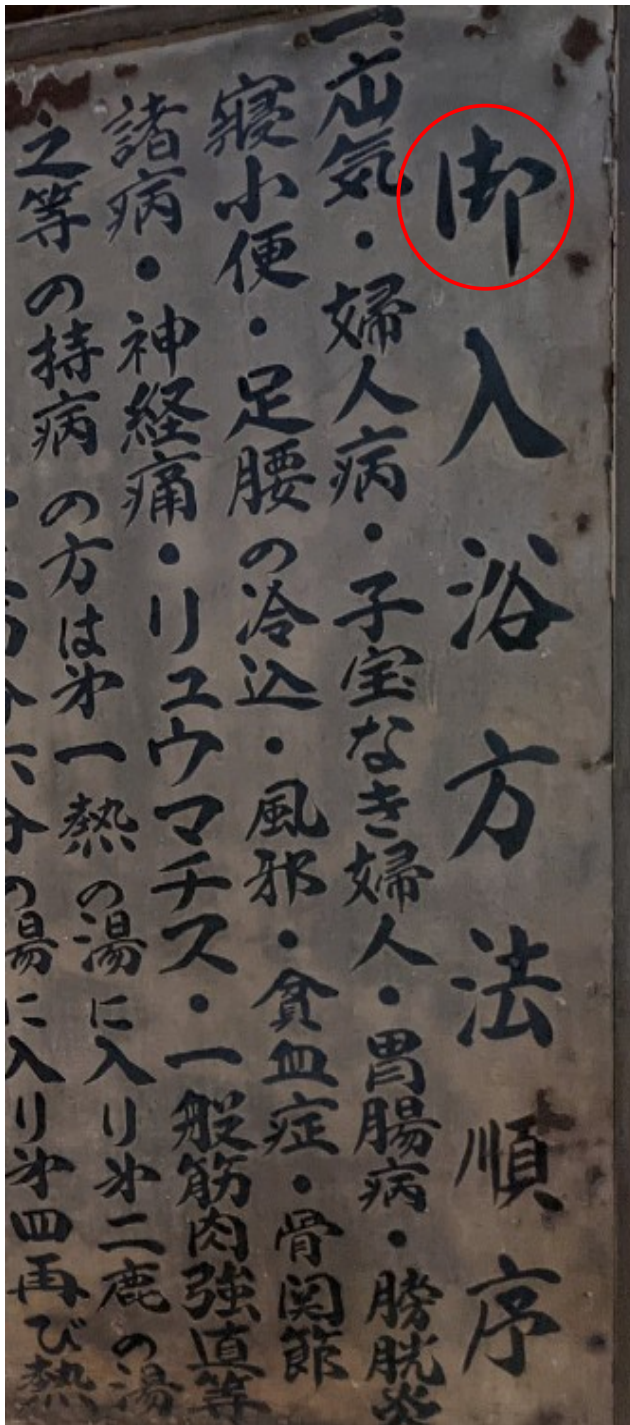 御入浴方法順序
一、疝気・婦人病・子宝なき婦人・胃腸病・膀胱炎
寝小便・足腰の冷込・風邪・貧血症・骨関節
諸病・神経痛・リュウマチス・一般筋肉強直等
之等の持病の方は㐧一熱の湯に入り㐧二鹿の湯
の湯に入り㐧四再び熱